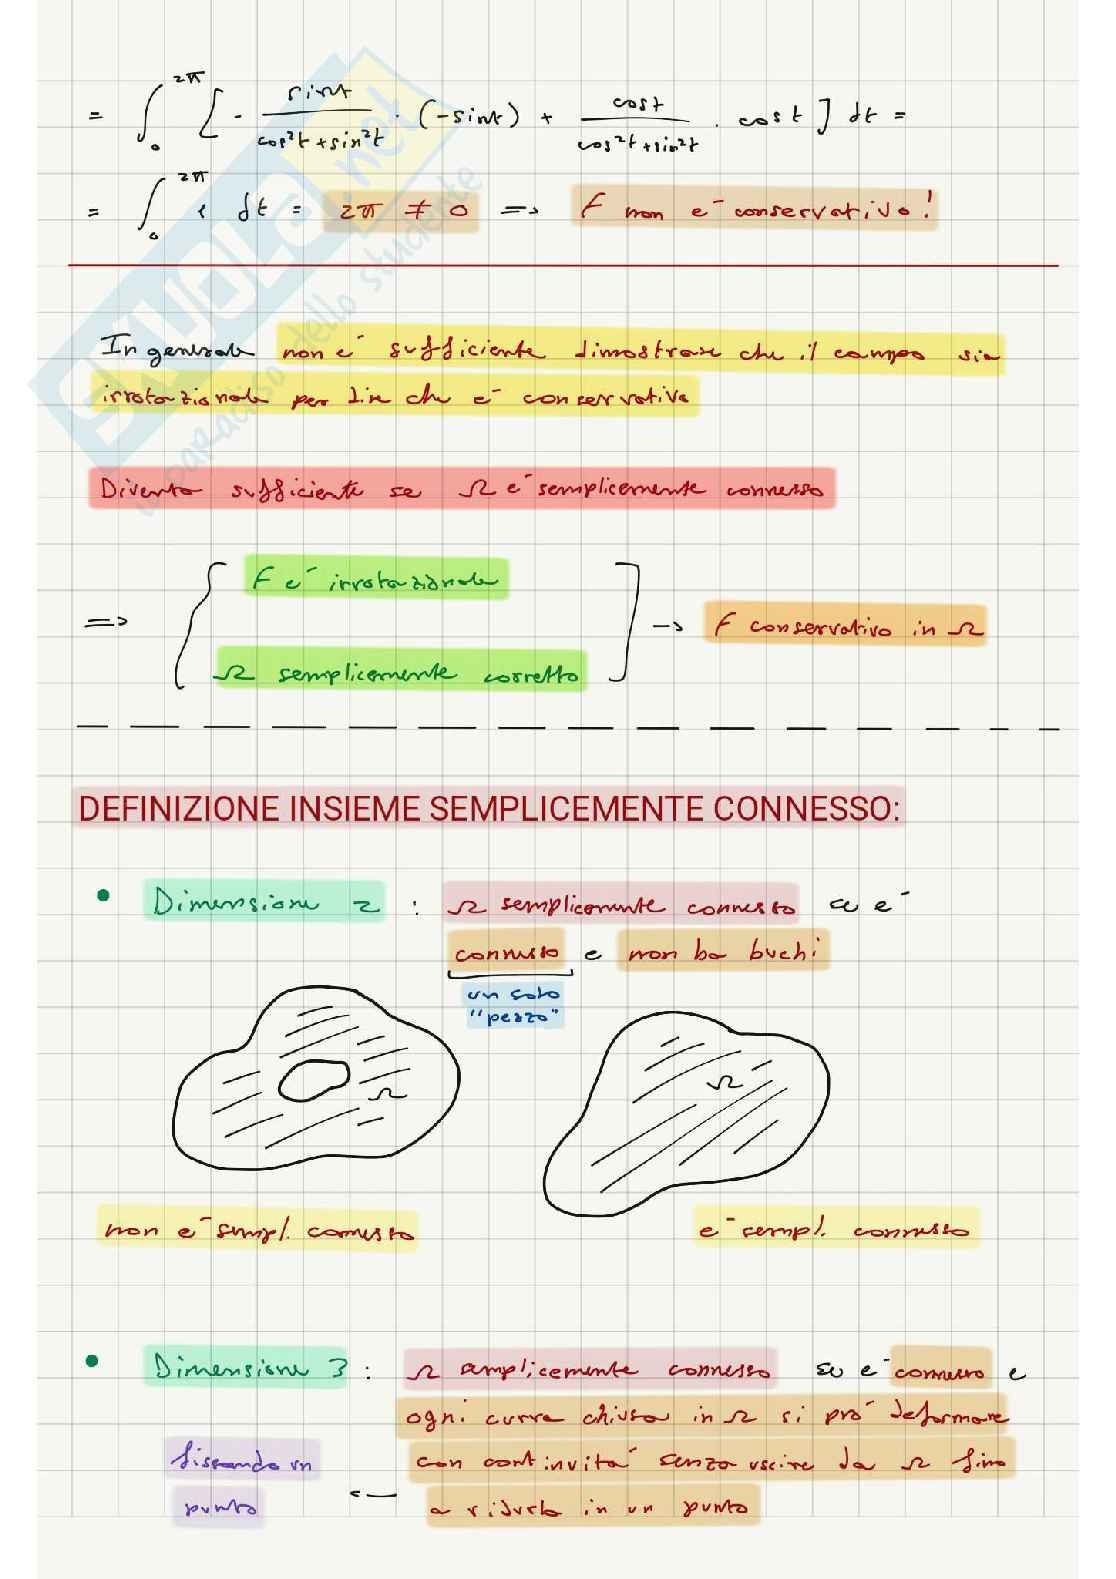 = ∫₀^2π [ - sint / (cos²t + sin²t) · (-sint) + cost / (cos²t + sin²t) · cost ] dt =
= ∫₀^2π 1 dt = 2π ≠ 0 => F non è conservativo!
In generale non è sufficiente dimostrare che il campo sia
irrotazionale per dire che è conservativo
Diventa sufficiente se Ω è semplicemente connesso
F è irrotazionale
=> -> F conservativo in Ω
Ω semplicemente corretto
DEFINIZIONE INSIEME SEMPLICEMENTE CONNESSO:
• Dimensione 2 : Ω semplicemente connesso se è
connesso e non ha buchi
un solo
"pezzo"
Ω
Ω
non è sempl. connesso
è sempl. connesso
• Dimensione 3 : Ω semplicemente connesso se è connesso e
ogni curva chiusa in Ω si può deformare
fissando un
con continuità senza uscire da Ω fino
punto
<- a ridurla in un punto
SKUOLA.net
il paradiso dello studente